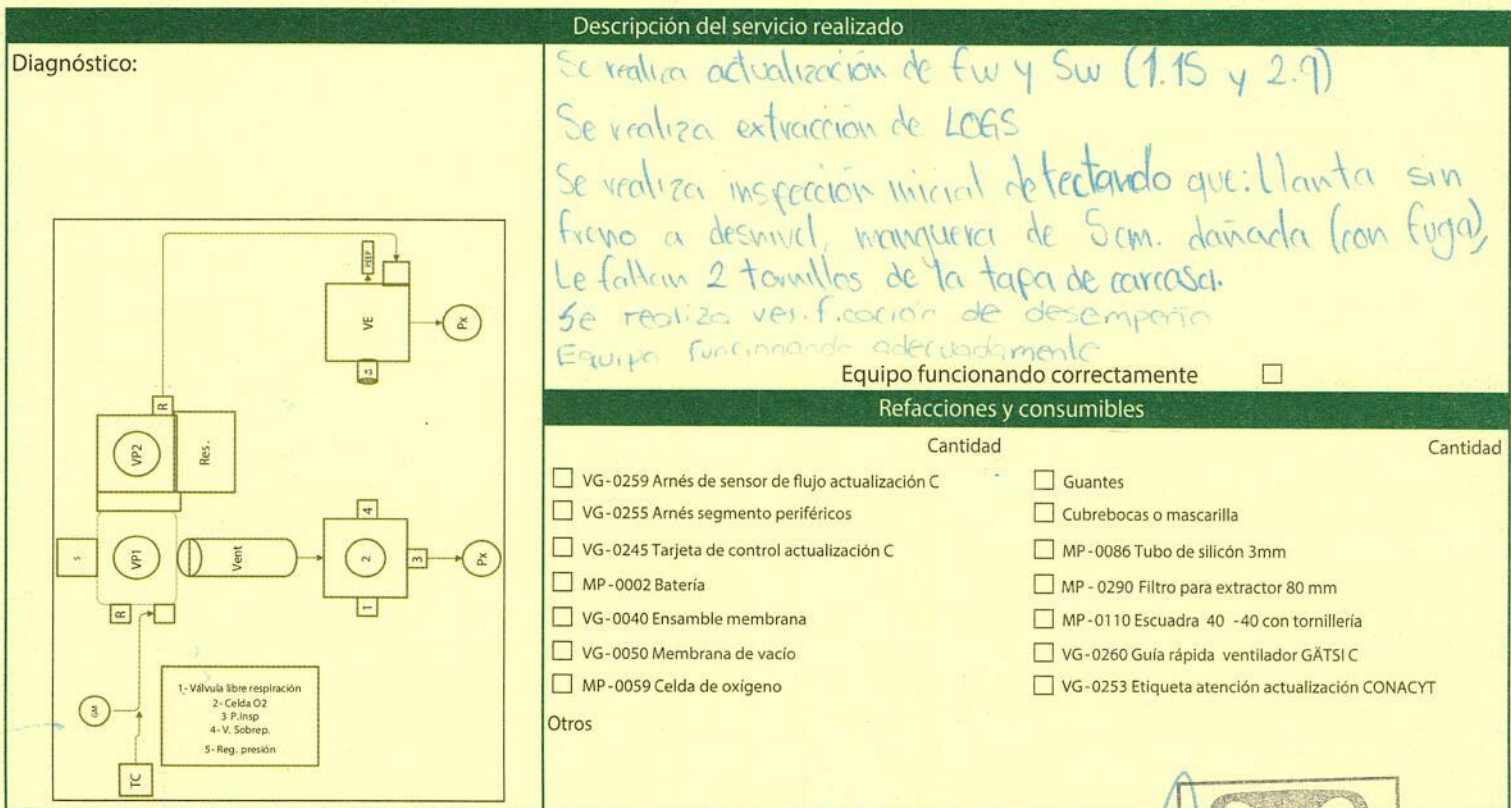 Descripción del servicio realizado
Diagnóstico:
Se realiza actualización de fw y Sw (1.15 y 2.9)
Se realiza extracción de LOGS
Se realiza inspección inicial detectando que: llanta sin
freno a desnivel, manguera de 5cm. dañada (con fuga),
Le faltan 2 tornillos de la tapa de carcasa.
Se realiza verificación de desempeño
Equipo funcionando adecuadamente
Equipo funcionando correctamente
PEEP
VE
Px
5
R
VP2
Res.
S
VP1
Vent
4
2
3
1
Px
R
GM
TC
1- Válvula libre respiración
2- Celda O2
3 P.Insp
4- V. Sobrep.
5- Reg. presión
Refacciones y consumibles
Cantidad
Cantidad
VG-0259 Arnés de sensor de flujo actualización C
VG-0255 Arnés segmento periféricos
VG-0245 Tarjeta de control actualización C
MP-0002 Batería
VG-0040 Ensamble membrana
VG-0050 Membrana de vacío
MP-0059 Celda de oxígeno
Guantes
Cubrebocas o mascarilla
MP-0086 Tubo de silicón 3mm
MP - 0290 Filtro para extractor 80 mm
MP-0110 Escuadra 40 -40 con tornillería
VG-0260 Guía rápida ventilador GÄTSI C
VG-0253 Etiqueta atención actualización CONACYT
Otros